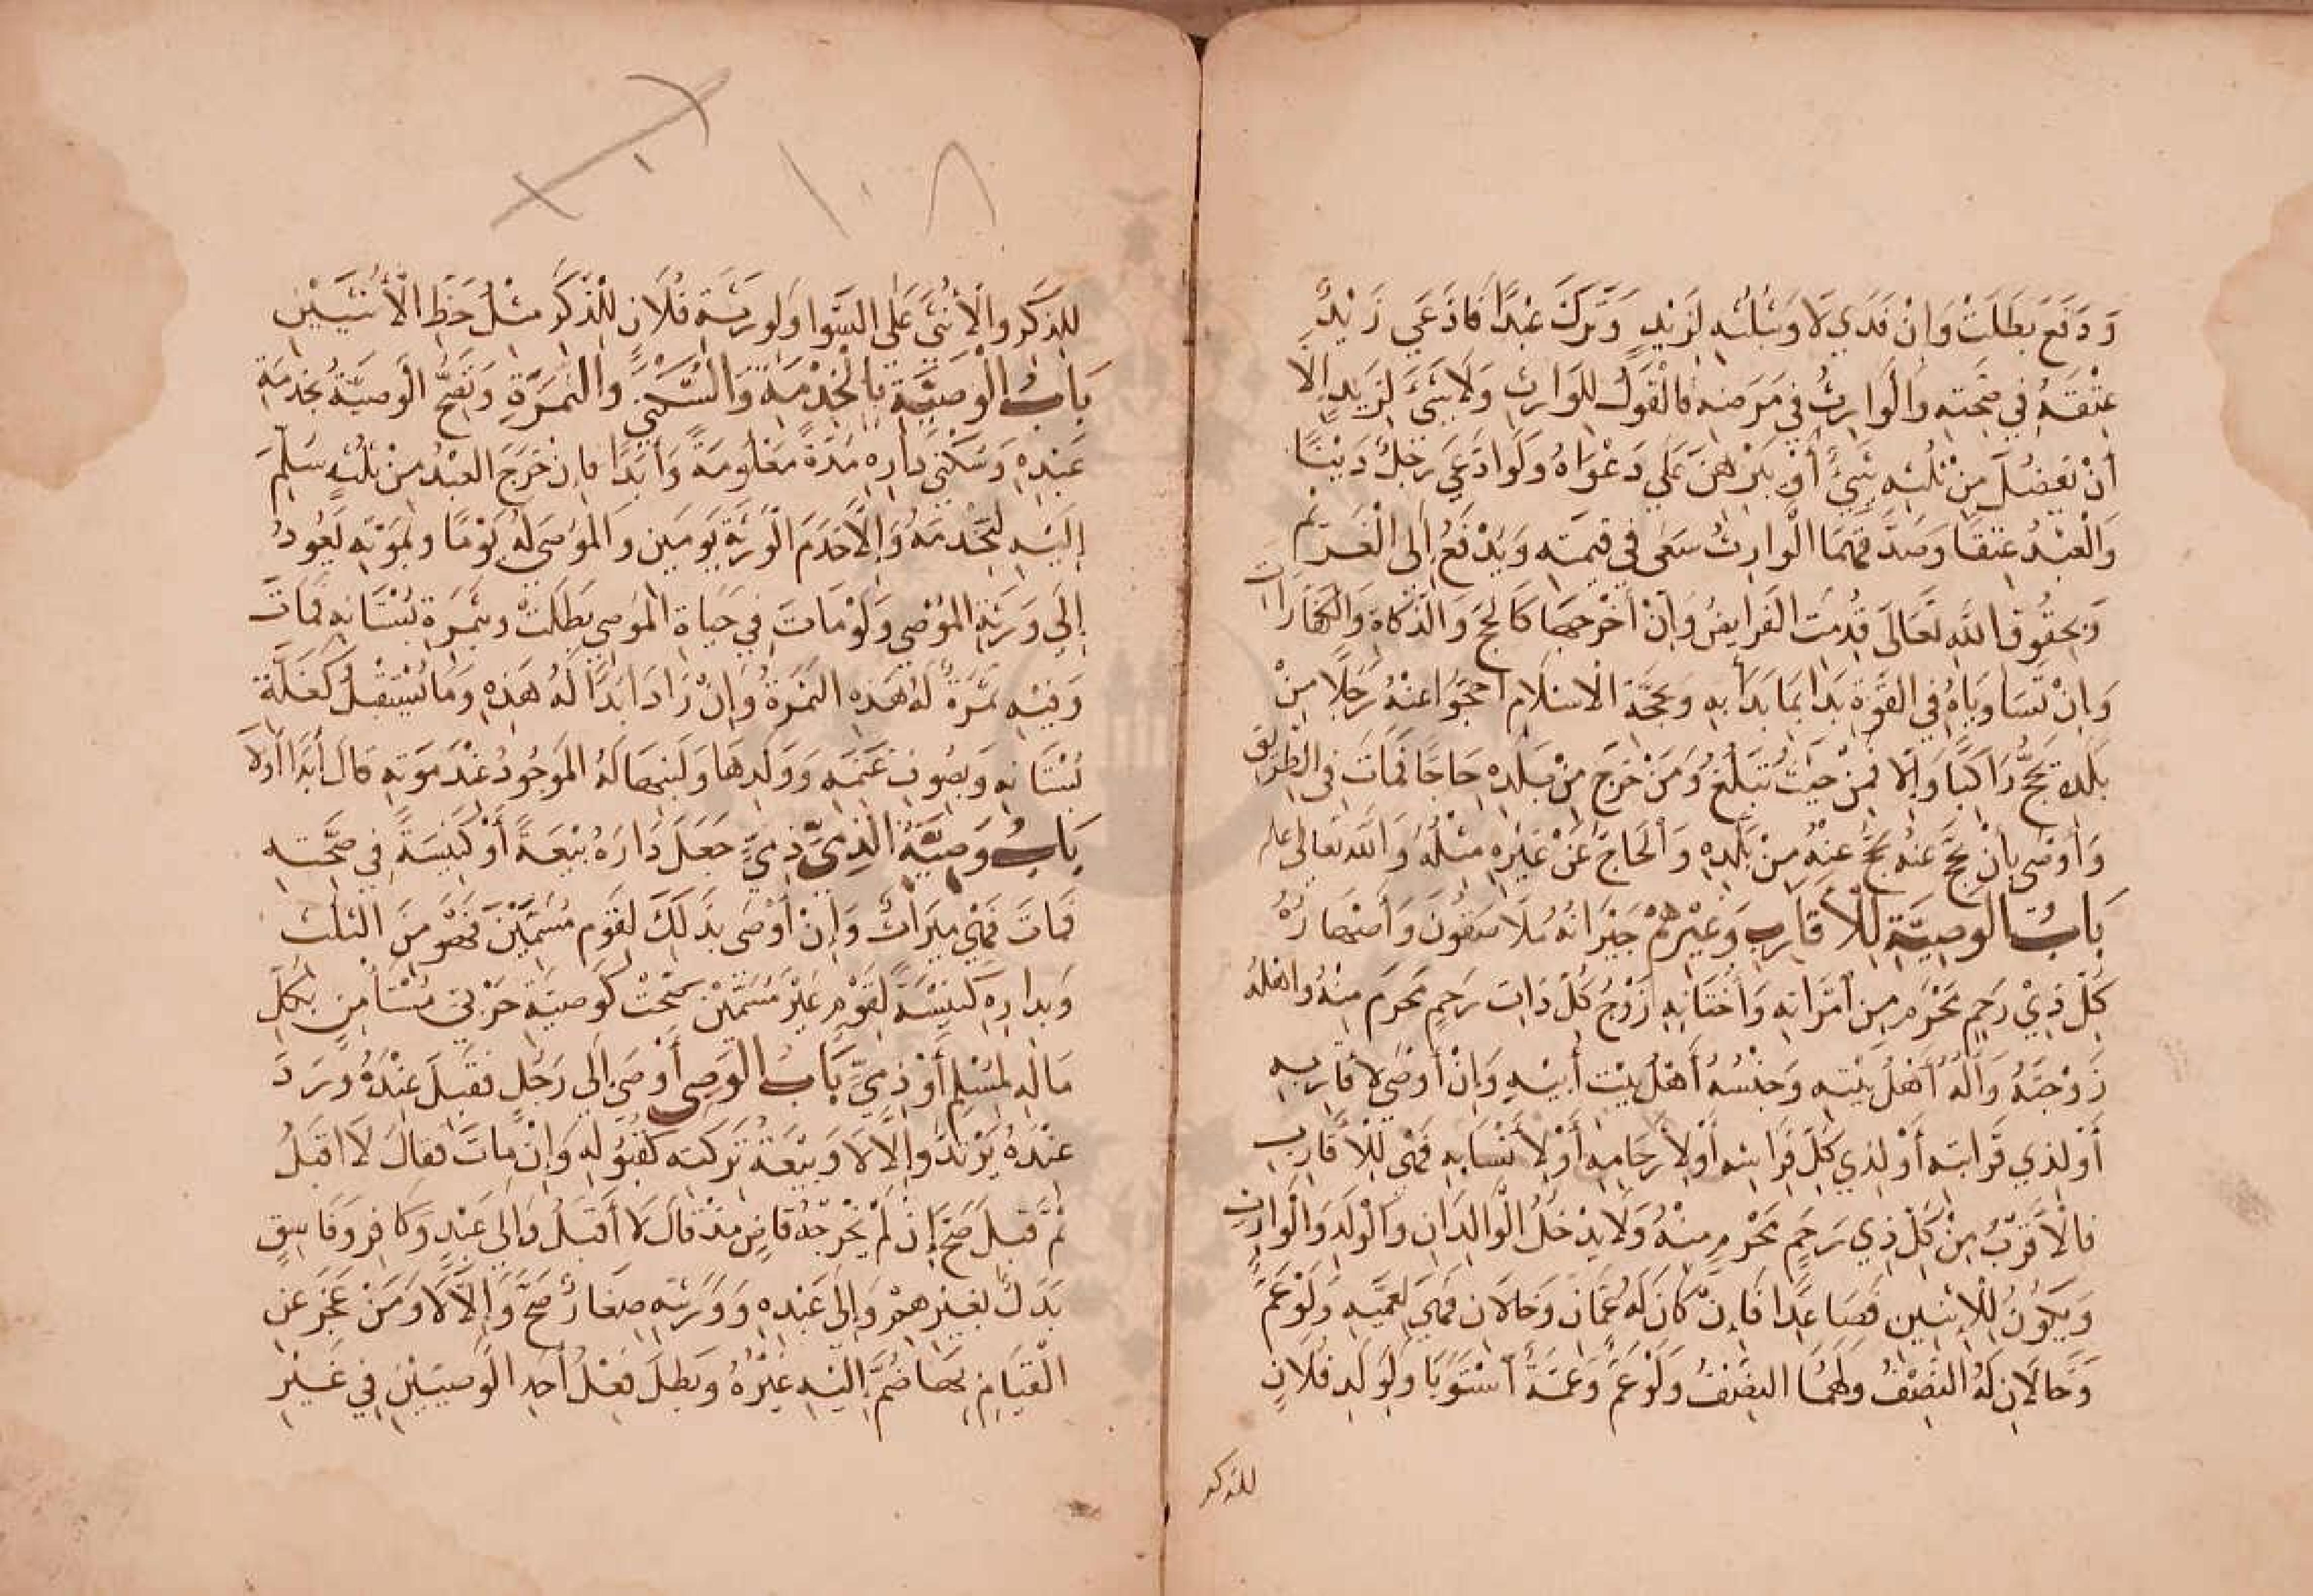 وَدَفَعَ بَطَلَتْ وَاِنْ فَدَي لَا وَبِثُلُثِهِ لِزَيْدٍ وَتَرَكَ عَبْدًا فَادَّعَي زَيْدٌ
عِتْقَهُ فِي صِحَّتِهِ وَالْوَارِثُ فِي مَرَضِهِ فَالْقَوْلُ لِلْوَارِثِ وَلَا شَيْءَ لِزَيْدٍ اِلَّا
أَنْ يَفْضُلَ مِنْ ثُلُثِهِ شَيْءٌ أَوْ بَرْهَنَ عَلَي دَعْوَاهُ وَلَوِ ادَّعَي رَجُلٌ دَيْنًا
وَالْعَبْدُ عِتْقًا وَصَدَّقَهُمَا الْوَارِثُ سَعَى فِي قِيمَتِهِ وَيُدْفَعُ اِلَى الْغَرِيمِ
وَبِحُقُوقِ اللهِ تَعَالَى قُدِّمَتِ الْفَرَايِضُ وَاِنْ أَخَّرَهَا كَالْحَجِّ وَالزَّكَاةِ وَالْكَفَّارَاتِ
وَاِنْ تَسَاوَيَا فِي الْقُوَّةِ بَدَا بِمَا بَدَأَ بِهِ وَبِحَجَّةِ الْاِسْلَامِ اَحَجُّوا عَنْهُ رَجُلًا مِنْ
بَلَدِهِ يَحُجُّ رَاكِبًا وَاِلَّا فَمِنْ حَيْثُ تَبْلُغُ وَمَنْ خَرَجَ مِنْ بَلَدِهِ حَاجًّا فَمَاتَ فِي الطَّرِيقِ
وَأَوْصَى بِأَنْ يُحَجَّ عَنْهُ يُحَجُّ عَنْهُ مِنْ بَلَدِهِ وَالْحَاجُّ عَنْ غَيْرِهِ مِثْلُهُ وَاَللهُ تَعَالَى اعلم
بَابُ الْوَصِيَّةِ لِلْأَقَارِبِ وَغَيْرِهِمْ جِيرَانُهُ مُلَاصِقُونَ وَأَصْهَارُهُ
كُلُّ ذِيْ رَحِمٍ مَحْرَمٍ مِنِ امْرَأتِهِ وَأَخْتَانُهُ زَوْجُ كُلِّ ذَاتِ رَحِمٍ مَحْرَمٍ مِنْهُ وَاهْلُهُ
زَوْجَتُهُ وَآلُهُ أَهْلُ بَيْتِهِ وَجِنْسُهُ أَهْلُ بَيْتِ أَبِيْهِ وَاِنْ أَوْصَي لِأَقَارِبِهِ
أَوْ لِذِي قَرَابَتِهِ أَوْ لِذِي كُلِّ قَرَابَتِهِ أَوْ لِأَرْحَامِهِ أَوْ لِأَنْسَابِهِ فَهِيَ لِلْأَقْرَبِ
فَالْأَقْرَبُ مِنْ كُلِّ ذِي رَحِمٍ مَحْرَمٍ مِنْهُ وَلَا يَدْخُلُ الْوَالِدَانِ وَالْوَلَدُ وَالْوَارِثُ
وَيَكُونُ لِلْاِثْنَيْنِ فَصَاعِدًا فَاِنْ كَانَ لَهُ عَمَّانِ وَخَالَانِ فَهِيَ لِعَمَّيْهِ وَلَوْ عَمٌّ
وَخَالَانِ لَهُ النِّصْفُ وَلَهُمَا النِّصْفُ وَلَوْ عَمٌّ وَعَمَّةٌ اسْتَوَيَا وَلِوَلَدِ فُلَانٍ
للذكر
١٠٨
لِلذَّكَرِ وَالْأُنْثَى عَلَى السَّوا وَلِوَرَثَةِ فُلَانٍ لِلذَّكَرِ مِثْلُ حَظِّ الْأُنْثَيَيْنِ
بَابُ الْوَصِيَّةِ بِالْخِدْمَةِ وَالسُّكْنَى وَالثَّمَرَةِ وَتَصِحُّ الْوَصِيَّةُ بِخِدْمَةِ
عَبْدِهِ وَسُكْنَي دَارِهِ مُدَّةً مَعْلُومَةً وَأَبَدًا فَاِنْ خَرَجَ العَبْدُ مِنْ ثُلُثِهِ سُلِّمَ
اِلَيْهِ لِيَخْدِمَهُ وَاِلَّا خَدَمَ الْوَرَثَةَ يَوْمَيْنِ وَالْمُوصَى لَهُ يَوْمًا وَبِمَوْتِهِ يَعُودُ
اِلَي وَرَثَةِ الْمُوْصِي وَلَوْ مَاتَ فِي حَيَاةِ الْمُوصِي بَطَلَتْ وَبِثَمَرَةِ بُسْتَانِهِ فَمَاتَ
وَفِيْهِ ثَمَرَةٌ لَهُ هَذِهِ الثَّمَرَةُ وَاِنْ زَادَ اَبَدًا لَهُ هَذِهِ وَمَا يُسْتَقْبَلُ كَغَلَّةِ
بُسْتَانِهِ وَبِصُوفِ غَنَمِهِ وَوَلَدِهَا وَلَبَنِهَا لَهُ الْمَوْجُودُ عِنْدَ مَوْتِهِ قَالَ أَبَدًا أَوْ لَا
بَابُ وَصِيَّةِ الذِّمِّيِّ ذِمِّيٌّ جَعَلَ دَارَهُ بِيْعَةً أَوْ كَنِيسَةً فِي صِحَّتِهِ
فَمَاتَ فَهِيَ مِيرَاثٌ وَاِنْ أَوْصَى بِذَلِكَ لِقَوْمٍ مُسَمَّيْنَ فَهُوَ مِنَ الثُّلُثِ
وَبِدَارِهِ كَنِيْسَةً لِقَوْمٍ غَيْرِ مُسَمَّيْنَ صَحَّتْ كَوَصِيَّةِ حَرْبِيٍّ مُسْتَأْمَنٍ بِكُلِّ
مَالِهِ لِمُسْلِمٍ أَوْ ذِمِّيٍّ بَابُ الْوَصِي أَوْصَى اِلَى رَجُلٍ فَقَبِلَ عِنْدَهُ وَرَدَّ
عِنْدَهُ يَرْتَدُّ وَاِلَّا لَا وَبَيْعُهُ تَرِكَتَهُ كَقَبُولِهِ وَاِنْ مَاتَ فَقَالَ لَا اَقْبَلُ
ثُمَّ قَبِلَ صَحَّ اِنْ لَمْ يُخْرِجْهُ قَاضٍ مُذْ قَالَ لَا أَقْبَلُ وَاِلَي عَبْدٍ وَكَافِرٍ وَفَاسِقٍ
بَدَّلَ بِغَيْرِهِمْ وَاِلَى عَبْدِهِ وَوَرَثَتُهُ صِغَارٌ صَحَّ وَاِلَّا لَا وَمَنْ عَجَزَ عَنِ
الْقِيَامِ بِهَا ضُمَّ اِلَيْهِ غَيْرُهُ وَبَطَلَ فِعْلُ أَحَدِ الْوَصِيَّيْنِ فِي غَيْرِ